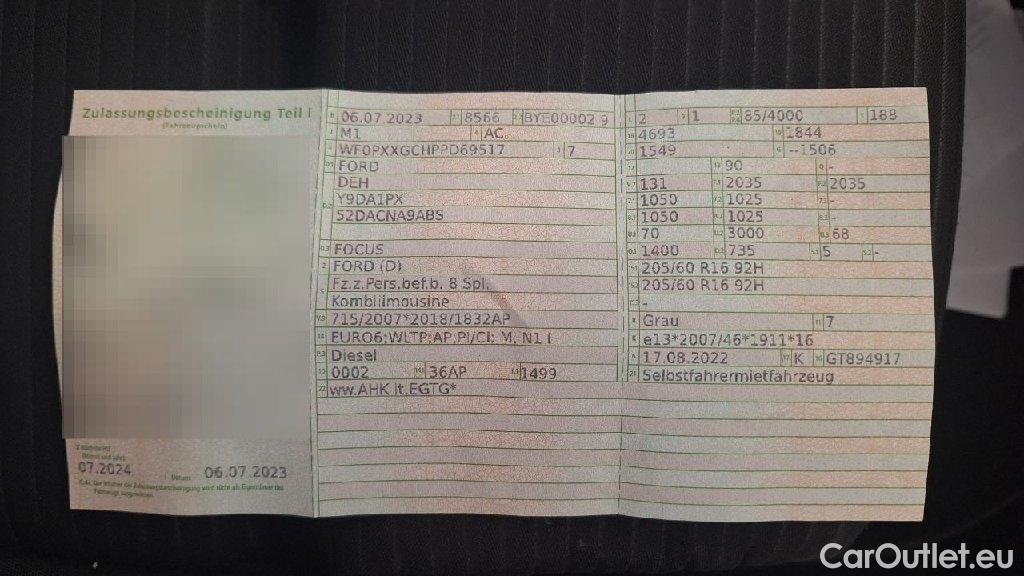 Zulassungsbescheinigung Teil I
(Fahrzeugschein)
07.2024 Datum 06.07.2023
06.07.2023 8566 BYE00002 9
M1 AC
WF0PXXGCHPPD69517 7
FORD
DEH
Y9DA1PX
52DACNA9ABS
FOCUS
FORD (D)
Fz.z.Pers.bef.b. 8 Spl.
Kombilimousine
715/2007*2018/1832AP
EURO6;WLTP;AP,PI/CI; M, N1 I
Diesel
0002 36AP 1499
ww.AHK lt.EGTG*
2 1 85/4000 188
4693 1844
1549 --1506
90 -
131 2035 2035
1050 1025 -
1050 1025 -
70 3000 68
1400 735 5 -
205/60 R16 92H
205/60 R16 92H
-
Grau 7
e13*2007/46*1911*16
17.08.2022 K GT894917
Selbstfahrermietfahrzeug
CarOutlet.eu